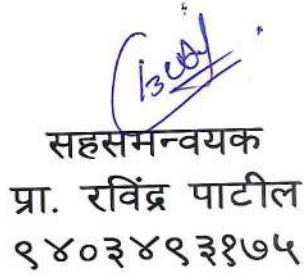 सहसमन्वयक
प्रा. रविंद्र पाटील
९४०३४९३१७५